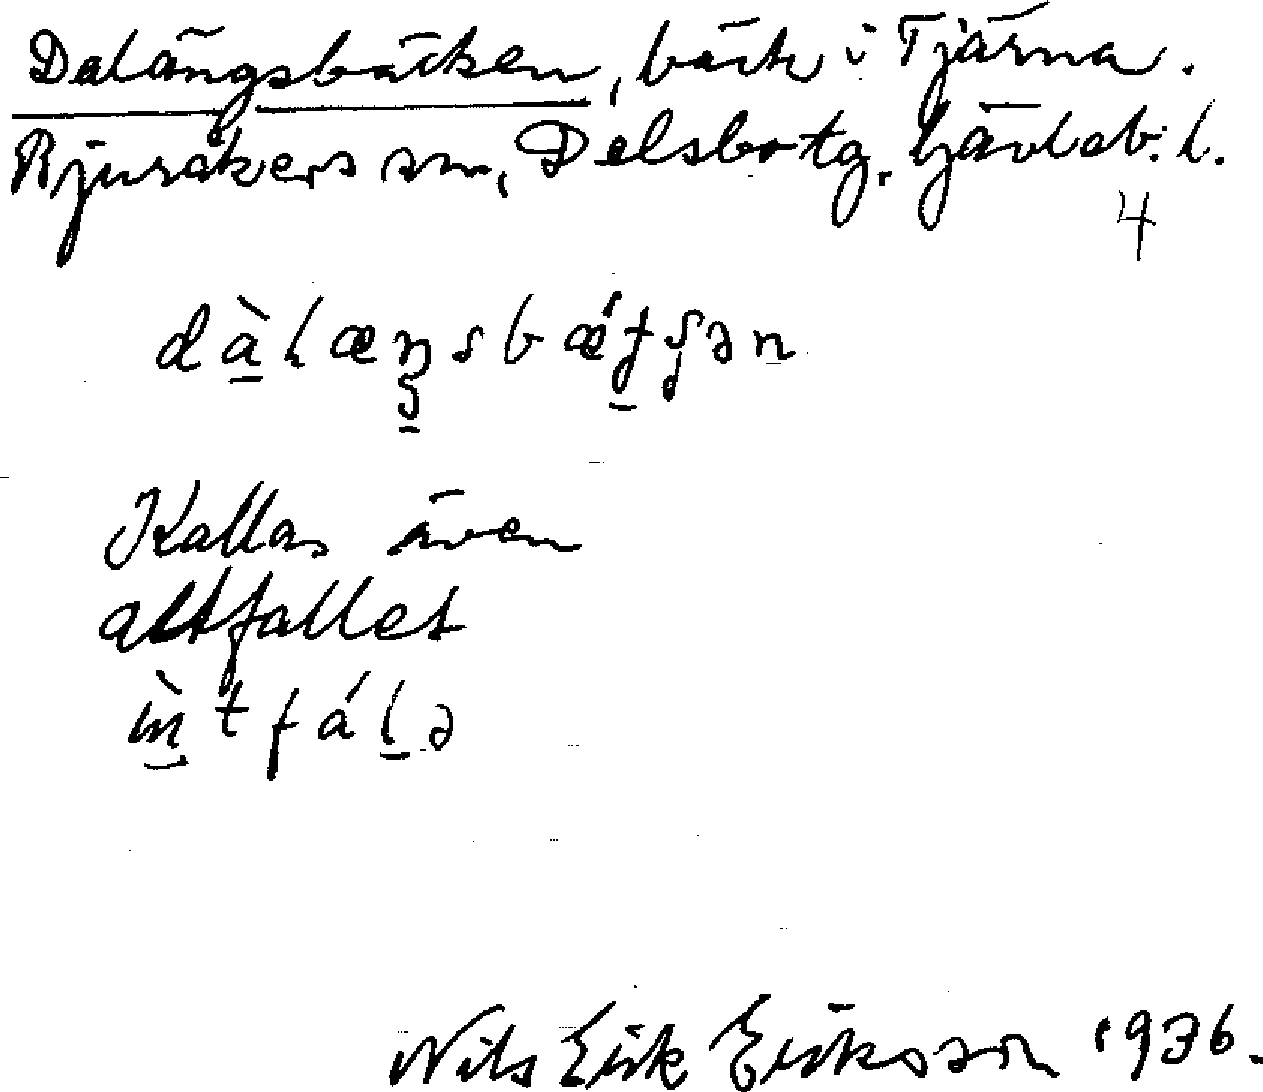 Dalängsbäcken, bäck i Tjärna.
Bjuråkers sn, Delsbo tg. Gävleb. l.
4
dàlæŋsbǽtʃən
Kallas även
utfallet
ʉ̀tfálə
Nils Erik Eriksson 1936.